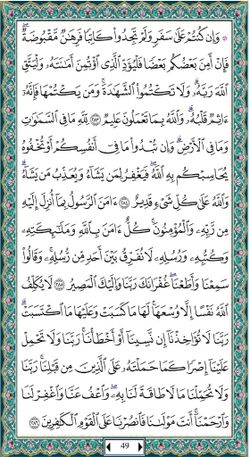 وَإِن كُنتُمْ عَلَىٰ سَفَرٍ وَلَمْ تَجِدُوا۟ كَاتِبًا فَرِهَـٰنٌ مَّقْبُوضَةٌ ۖ
فَإِنْ أَمِنَ بَعْضُكُم بَعْضًا فَلْيُؤَدِّ ٱلَّذِى ٱؤْتُمِنَ أَمَـٰنَتَهُۥ وَلْيَتَّقِ
ٱللَّهَ رَبَّهُۥ ۗ وَلَا تَكْتُمُوا۟ ٱلشَّهَـٰدَةَ ۚ وَمَن يَكْتُمْهَا فَإِنَّهُۥٓ
ءَاثِمٌ قَلْبُهُۥ ۗ وَٱللَّهُ بِمَا تَعْمَلُونَ عَلِيمٌ ٢٨٣ لِّلَّهِ مَا فِى ٱلسَّمَـٰوَٰتِ
وَمَا فِى ٱلْأَرْضِ ۗ وَإِن تُبْدُوا۟ مَا فِىٓ أَنفُسِكُمْ أَوْ تُخْفُوهُ
يُحَاسِبْكُم بِهِ ٱللَّهُ ۖ فَيَغْفِرُ لِمَن يَشَآءُ وَيُعَذِّبُ مَن يَشَآءُ ۗ
وَٱللَّهُ عَلَىٰ كُلِّ شَىْءٍ قَدِيرٌ ٢٨٤ ءَامَنَ ٱلرَّسُولُ بِمَآ أُنزِلَ إِلَيْهِ
مِن رَّبِّهِۦ وَٱلْمُؤْمِنُونَ ۚ كُلٌّ ءَامَنَ بِٱللَّهِ وَمَلَـٰٓئِكَتِهِۦ
وَكُتُبِهِۦ وَرُسُلِهِۦ لَا نُفَرِّقُ بَيْنَ أَحَدٍ مِّن رُّسُلِهِۦ ۚ وَقَالُوا۟
سَمِعْنَا وَأَطَعْنَا ۖ غُفْرَانَكَ رَبَّنَا وَإِلَيْكَ ٱلْمَصِيرُ ٢٨٥ لَا يُكَلِّفُ
ٱللَّهُ نَفْسًا إِلَّا وُسْعَهَا ۚ لَهَا مَا كَسَبَتْ وَعَلَيْهَا مَا ٱكْتَسَبَتْ ۗ
رَبَّنَا لَا تُؤَاخِذْنَآ إِن نَّسِينَآ أَوْ أَخْطَأْنَا ۚ رَبَّنَا وَلَا تَحْمِلْ
عَلَيْنَآ إِصْرًا كَمَا حَمَلْتَهُۥ عَلَى ٱلَّذِينَ مِن قَبْلِنَا ۚ رَبَّنَا
وَلَا تُحَمِّلْنَا مَا لَا طَاقَةَ لَنَا بِهِۦ ۖ وَٱعْفُ عَنَّا وَٱغْفِرْ لَنَا
وَٱرْحَمْنَآ ۚ أَنتَ مَوْلَىٰنَا فَٱنصُرْنَا عَلَى ٱلْقَوْمِ ٱلْكَـٰفِرِينَ ٢٨٦
49